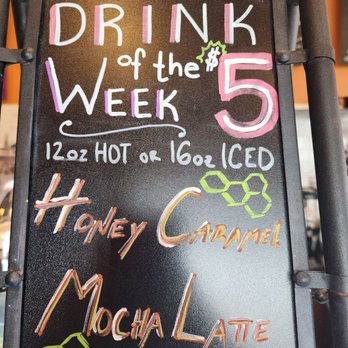 DRINK
of the $5
WEEK
12oz HOT OR 16oz ICED
HONEY CARAMEL
MOCHA LATTE